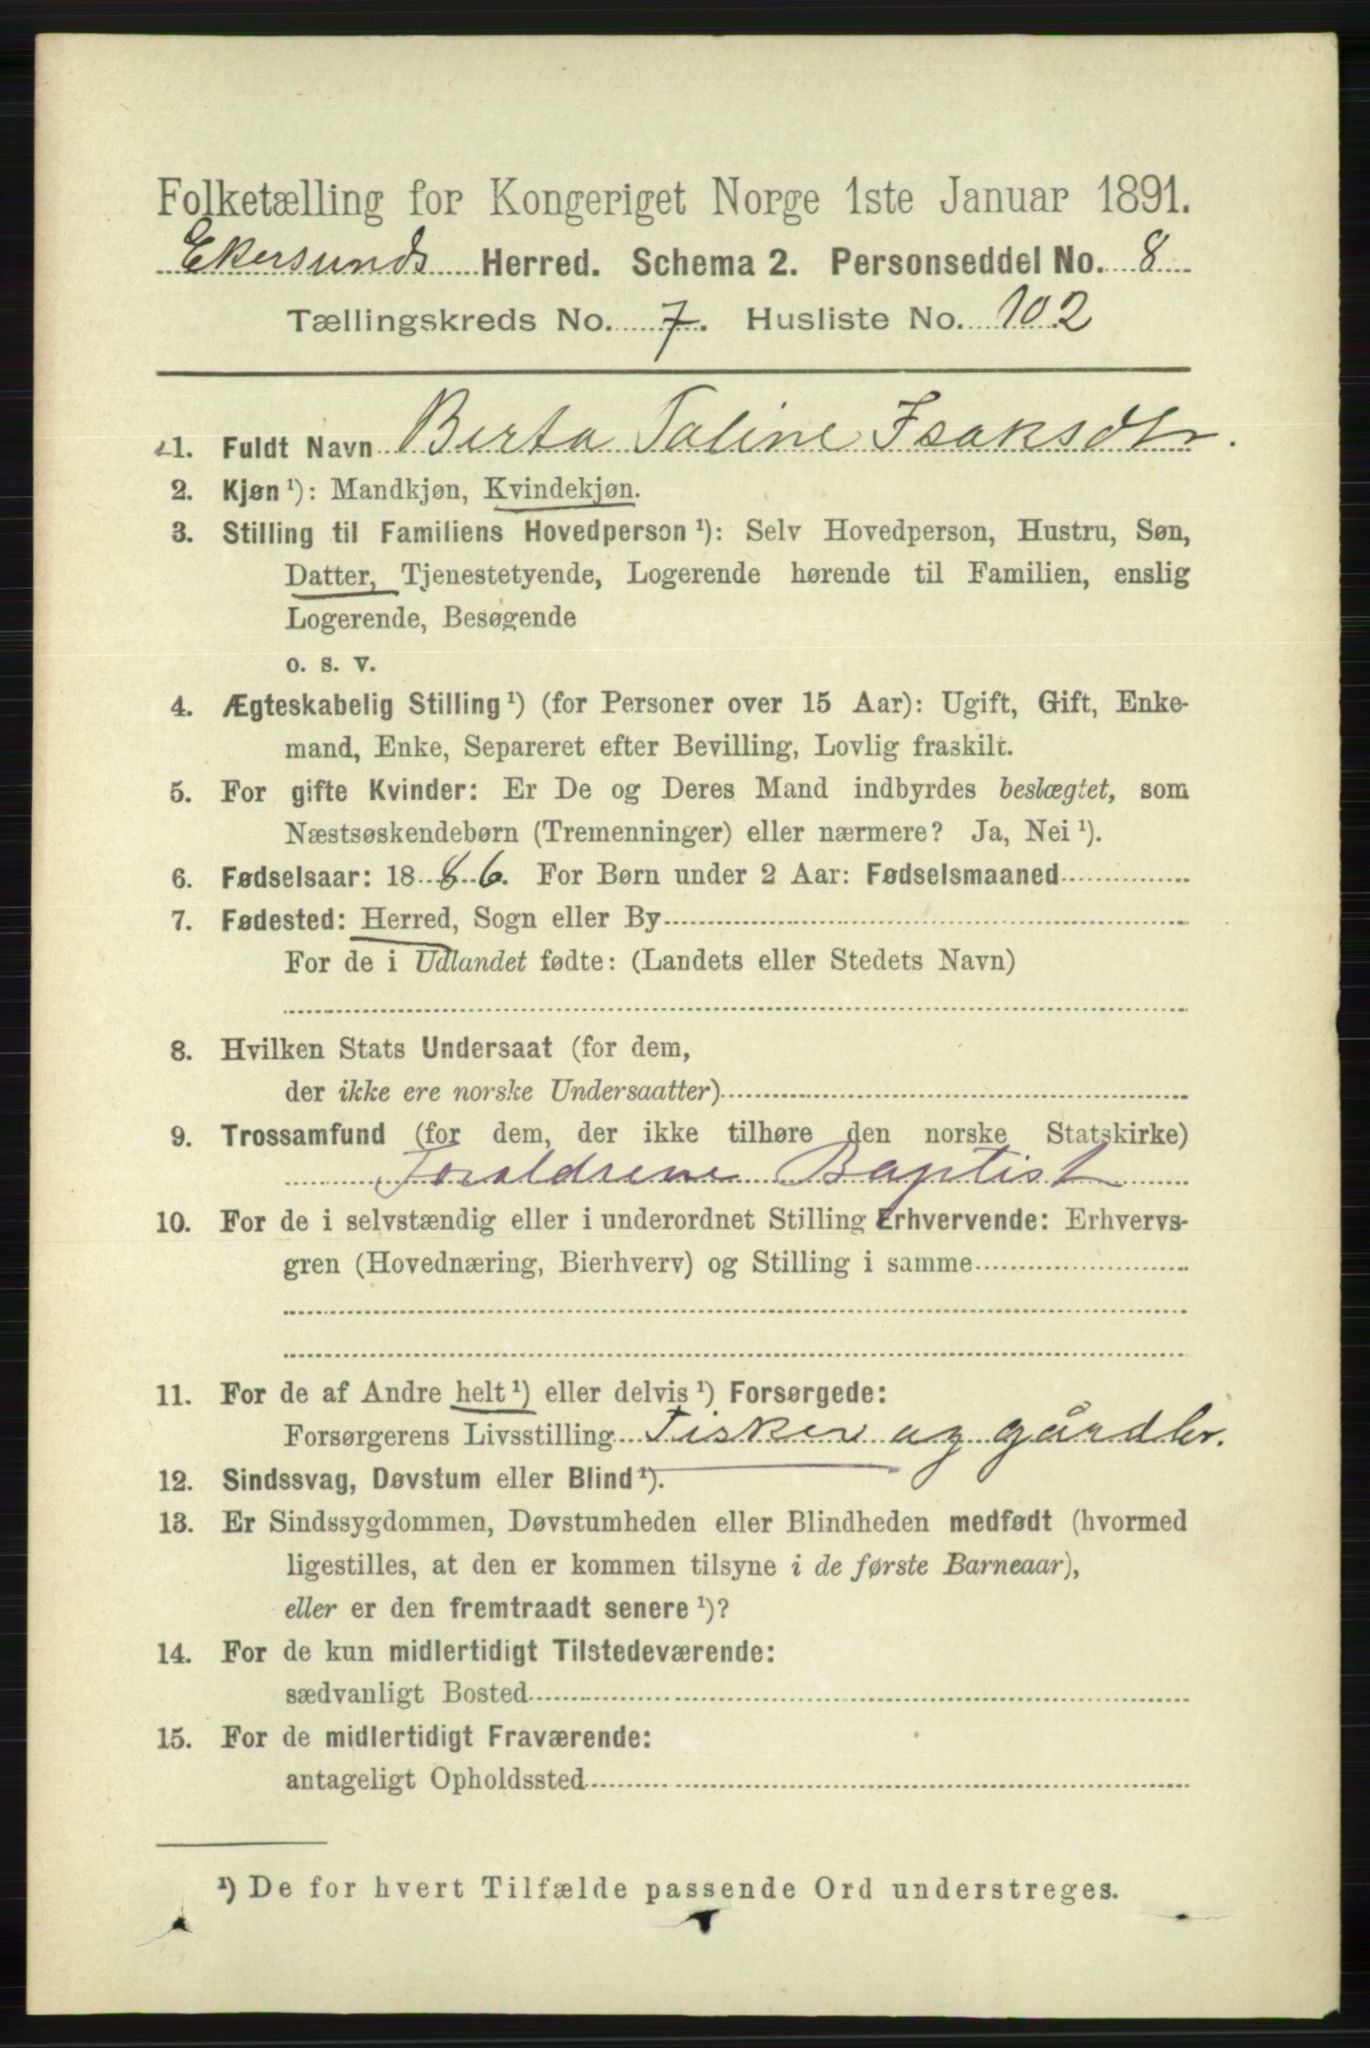 Folketælling for Kongeriget Norge 1ste Januar 1891.
Ekersunds Herred. Schema 2. Personseddel No. 8
Tællingskreds No. 7. Husliste No. 102
1. Fuldt Navn Berta Taline Isaksdtr.
2. Kjøn ¹): Mandkjøn, Kvindekjøn.
3. Stilling til Familiens Hovedperson ¹): Selv Hovedperson, Hustru, Søn,
Datter, Tjenestetyende, Logerende hørende til Familien, enslig
Logerende, Besøgende
o. s. v.
4. Ægteskabelig Stilling ¹) (for Personer over 15 Aar): Ugift, Gift, Enke-
mand, Enke, Separeret efter Bevilling, Lovlig fraskilt.
5. For gifte Kvinder: Er De og Deres Mand indbyrdes beslægtet, som
Næstsøskendebørn (Tremenninger) eller nærmere? Ja, Nei ¹).
6. Fødselsaar: 1886. For Børn under 2 Aar: Fødselsmaaned
7. Fødested: Herred, Sogn eller By
For de i Udlandet fødte: (Landets eller Stedets Navn)
8. Hvilken Stats Undersaat (for dem,
der ikke ere norske Undersaatter)
9. Trossamfund (for dem, der ikke tilhøre den norske Statskirke)
Foraldrene Baptist
10. For de i selvstændig eller i underordnet Stilling Erhvervende: Erhvervs-
gren (Hovednæring, Bierhverv) og Stilling i samme
11. For de af Andre helt ¹) eller delvis ¹) Forsørgede:
Forsørgerens Livsstilling Fisker og gårdbr.
12. Sindssvag, Døvstum eller Blind ¹).
13. Er Sindssygdommen, Døvstumheden eller Blindheden medfødt (hvormed
ligestilles, at den er kommen tilsyne i de første Barneaar),
eller er den fremtraadt senere ¹)?
14. For de kun midlertidigt Tilstedeværende:
sædvanligt Bosted
15. For de midlertidigt Fraværende:
antageligt Opholdssted
¹) De for hvert Tilfælde passende Ord understreges.